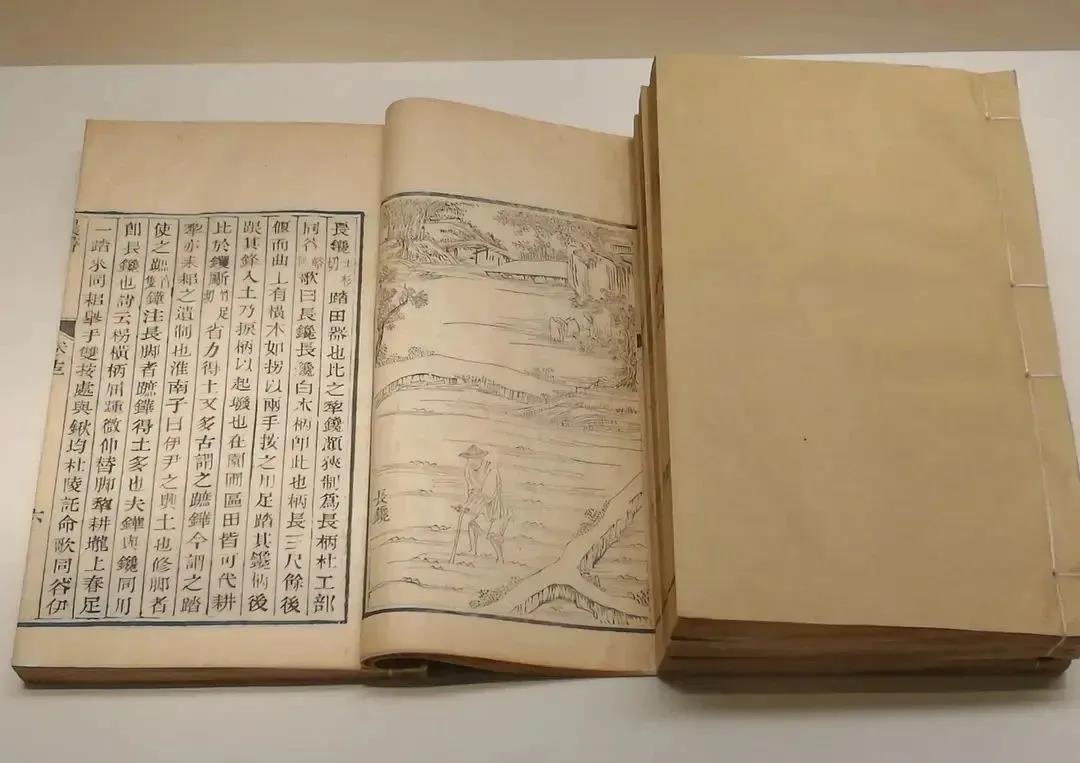 長鑱
長鑱士杉切踏田器也比之犂鑱頗狹制爲長柄杜工部
同谷歌曰長鑱長鑱白木柄卽此也柄長三尺餘後
偃而曲上有橫木如拐以兩手按之用足踏其鑱柄後
跟其鋒入土乃捩柄以起墢也在園圃區田皆可代耕
比於钁斸竹足切省力得土又多古謂之蹠鏵今謂之踏
犂亦耒耜之遺制也淮南子曰伊尹之興土也修脚者
使之蹠鏵注長脚者蹠鏵得土多也夫鏵與鑱同用
卽長鑱也詩云柺橫柄屈踵微仰替脚犂耕壠上春足
一踏耒同耜舉手雙按處與鍬均杜陵託命歌同谷伊
六